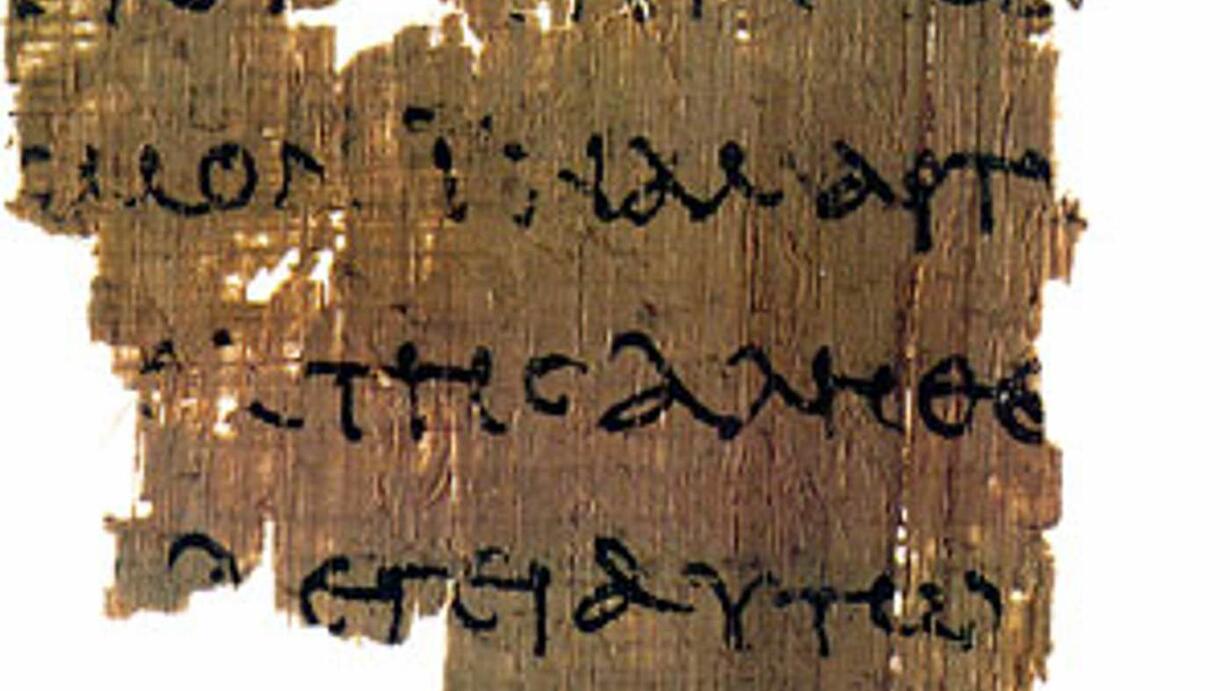 ϲμον ϊνα μαρτυ
εκ τηϲ αληθε
λεγει αυτω